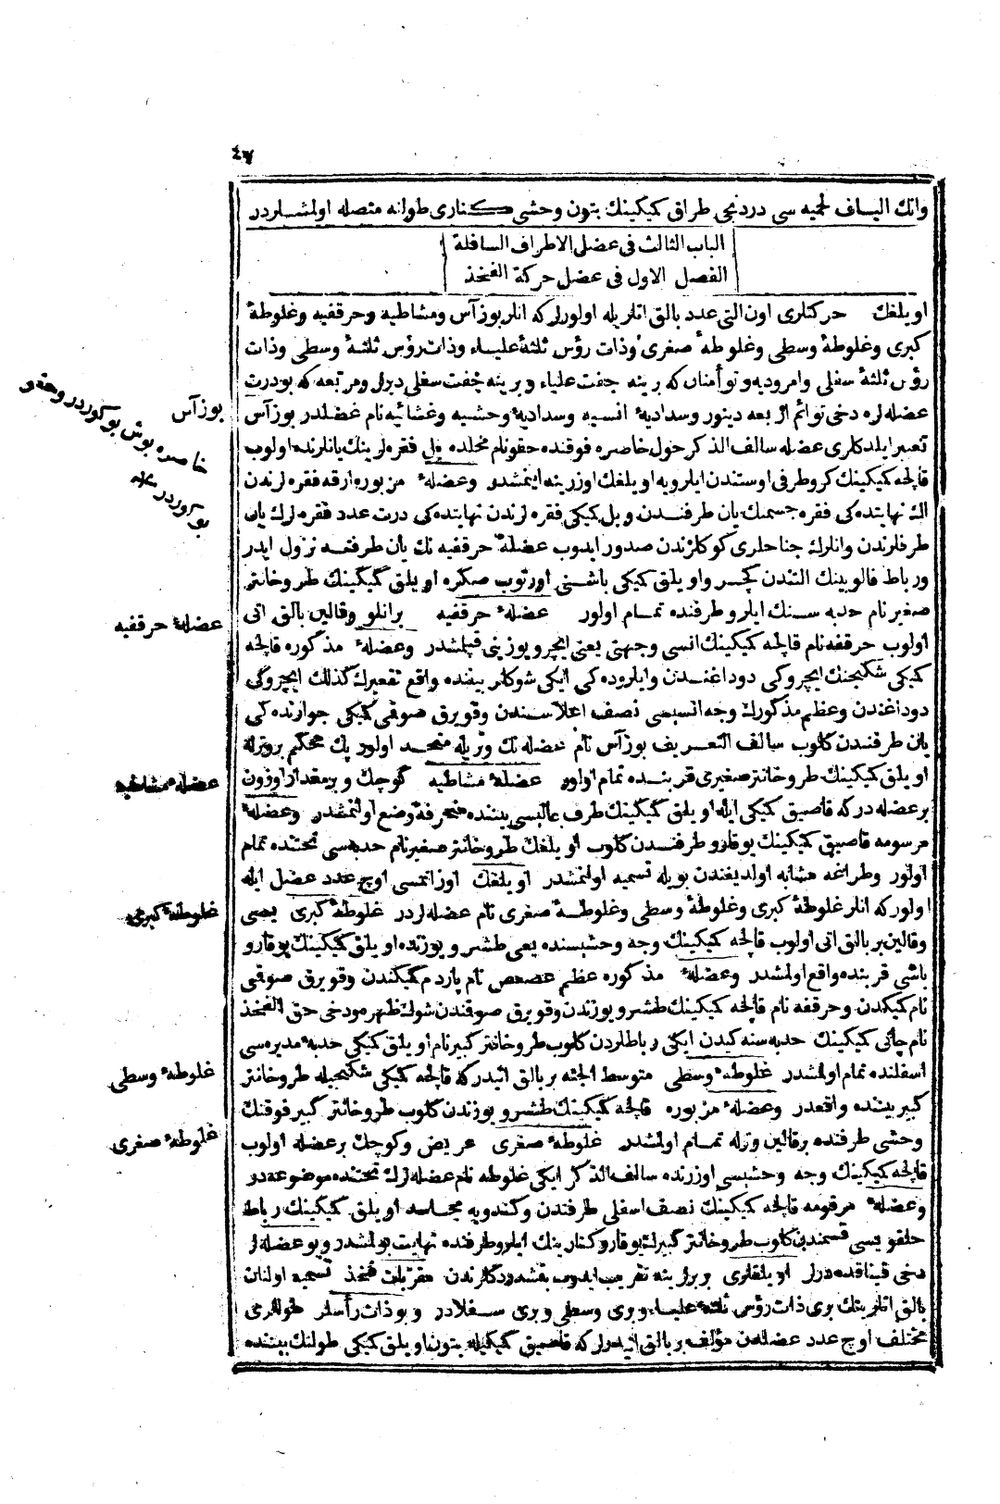 ٤٧
وانك الياف لحميه سى دردنجى طراق كميكينك بتون وحشى كنارى طولانه متصله اولمشلردر
الباب الثالث فى عضل الاطراف السافلة
الفصل الاول فى عضل حركة الفخذ
اويلغك حركتلرى اون التى عدد بالق اتلريله اولورلر كه انلر بوز آس ومشاطيه وحرقفيه وغلوطهٔ
كبرى وغلوطهٔ وسطى وغلوطهٔ صغرى وذات رؤس ثلثهٔ علياء وذات رؤس ثلثهٔ وسطى وذات
رؤس ثلثهٔ سفلى وامروديه وتوأمتان كه برينه جفت علياء وبرينه جفت سفلى ديرلر ومربعه كه بودرت
عضله لره دخى توائم اربعه دينور وسداديهٔ انسيه وسداديهٔ وحشيه وغشائيه نام عضلدر بوز آس
تعبير ايلدكلرى عضله سالف الذكر حول خاصره فوقنده حقونام محلده بل فقره لرينك يانلرنده اولوب
قالچه كميكينك كروطرفى اوستندن ايلرويه اويلغك اوزرينه اينمشدر وعضلهٔ مزبوره ارقه فقره لرندن
الك نهايتده كى فقره جسمنك يان طرفندن وبل كميكى فقره لرندن نهايتده كى درت عدد فقره لرك يان
طرفلرندن وانلرك جناحلرى كوكلرندن صدور ايدوب عضلهٔ حرقفيه نك يان طرفنه نزول ايدر
ورباط فالوپينك التندن كچر واويلق كميكى باشنى اورتوب صكره اويلق كميكينك طروخانتر
صغير نام حدبه سنك ايلروطرفنده تمام اولور عضلهٔ حرقفيه برانلو وقالين بالق اتى
اولوب حرقفه نام قالچه كميكينك انسى وجهنى يعنى ايچرويوزينى قپلمشدر وعضلهٔ مذكوره قالچه
كميكى شكنجنك ايچروكى دوداغندن وايلروده كى ايكى شوكلر بيننده واقع تقعيرك كذلك ايچروكى
دوداغندن وعظم مذكورك وجه انسيسى نصف اعلاسندن وقويرق صوقى كميكى جوارنده كى
يان طرفندن كلوب سالف التعريف بوز آس نام عضله نك وتريله متحد اولور پك محكم بروترله
اويلق كميكينك طروخانتر صغيرى قربنده تمام اولور عضلهٔ مشاطيه كوچك وبرمقدار اوزون
برعضله در كه قاصيق كميكى ايله اويلق كميكينك طرف عاليسى بيننده منحرفة وضع اولنمشدر وعضلهٔ
مرسومه قاصيق كميكينك يوقارو طرفندن كلوب اويلغك طروخانتر صغير نام حدبه سى تحتنده تمام
اولور وطراغه مشابه اولديغندن بويله تسميه اولنمشدر اويلغك اوزانمسى اوچ عدد عضل ايله
اولور كه انلر غلوطهٔ كبرى وغلوطهٔ وسطى وغلوطهٔ صغرى نام عضله لردر غلوطهٔ كبرى يصى
وقالين بر بالق اتى اولوب قالچه كميكينك وجه وحشيسنده يعنى طشرو يوزنده اويلق كميكينك يوقارو
باشى قربنده واقع اولمشدر وعضلهٔ مذكوره عظم عصعص نام پاردم كميكندن وقويرق صوقى
نام كميكدن وحرقفه نام قالچه كميكينك طشرو يوزندن وقويرق صوقندن شوك ظهرمودخى حق الفخذ
نام چاتى كميكينك حدبه سنه كيدن ايكى رباطلردن كلوب طروخانتر كبير نام اويلق كميكى حدبهٔ مديره سى
اسفلنده تمام اولمشدر غلوطهٔ وسطى متوسط الجثه بربالق اتيدر كه قالچه كميكى شكنجيله طروخانتر
كبير بيننده واقعدر وعضلهٔ مزبوره قالچه كميكينك طشرو يوزندن كلوب طروخانتر كبير فوقنك
وحشى طرفنده برقالين وترله تمام اولمشدر غلوطهٔ صغرى عريض وكوچك برعضله اولوب
قالچه كميكينك وجه وحشيسى اوزرنده سالف الذكر ايكى غلوطه نام عضله لرك تحتنده موضوعه در
وعضلهٔ مرقومه قالچه كميكينك نصف اسفلى طرفندن وكندويه مجاسد اويلق كميكينك رباط
حلقويسى قسمندن كلوب طروخانتر كبيرك يوقارو كنارينك ايلروطرفنده نهايت بولمشدر وبوعضله لر
دخى قيناقده درلر اويلقلرى بربرلرينه تقريب ايدوب بقشدردكلرندن مقربات فخذ تسميه اولنان
بالق اتلرينك برى ذات رؤس ثلثهٔ علياء وبرى وسطى وبرى سفلادر وبوذات رأسلر طوللرى
مختلف اوچ عدد عضله دن مؤلف بربالق اتيدرلر كه قاصيق كميكيله بتون اويلق كميكى طولنك بيننده
بوزآس
خاصره بوش بوكوردر وحقو
بوكوردر
عضلهٔ حرقفيه
عضلهٔ مشاطيه
غلوطهٔ كبرى
غلوطهٔ وسطى
غلوطهٔ صغرى